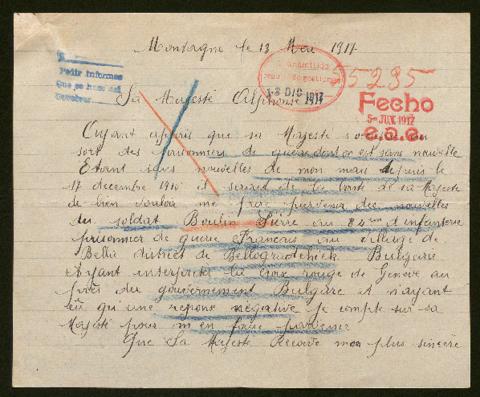 Montagne le 13 Mai 1917
Pedir informes
que se han del
5295
DIC 1917
Fecho
5 - JUN. 1917
e.a.e.
Sa Majesté Alphonse 13
Ayant appris que sa Majesté s'occupe du
sort des prisonniers de guerre dont on est sans nouvelle
Etant sans nouvelles de mon mari depuis le
17 decembre 1916 il serait de la bonté de sa Majesté
de bien vouloir me faire parvenir des nouvelles
du soldat Boulin Pierre du 84eme d'infanterie
prisonnier de guerre Francais au village de
Bella district de Bellogradchick Bulgarie
Ayant interprete la croix rouge de Geneve au
près du gouvernement Bulgare et n'ayant
eu qu'une repons negative je compte sur sa
Majesté pour m'en faire parvenir
Que Sa Majesté Recoive mon plus sincère